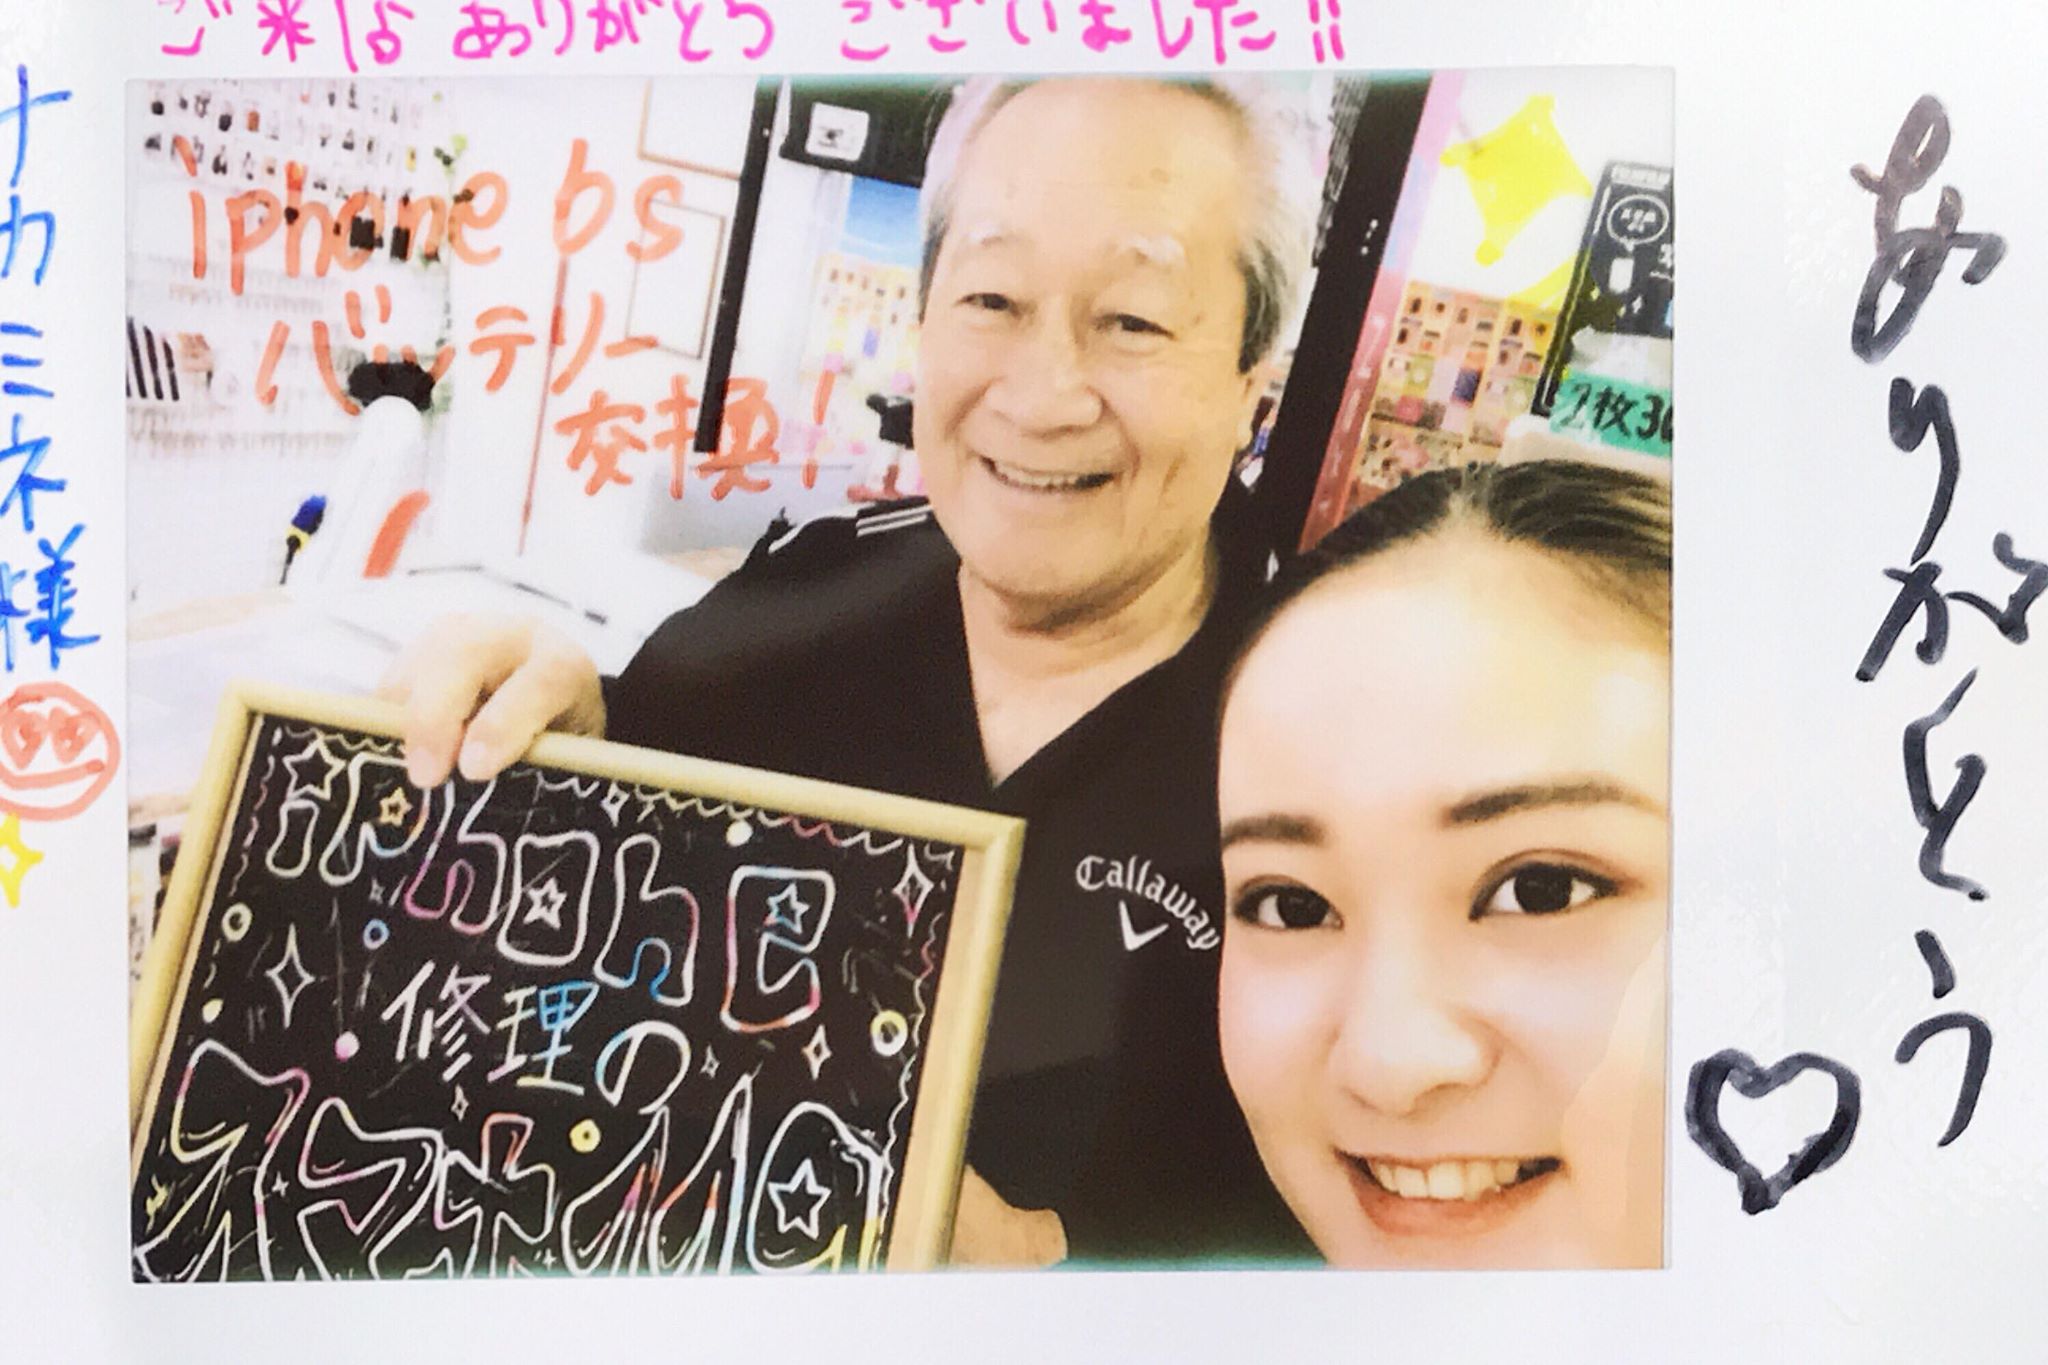 ご来店ありがとうございました!!
ナカミネ様
iphone 6s
バッテリー
交換!
ありがとう
2枚30
Callaway
iPhone
修理の
スマホ110